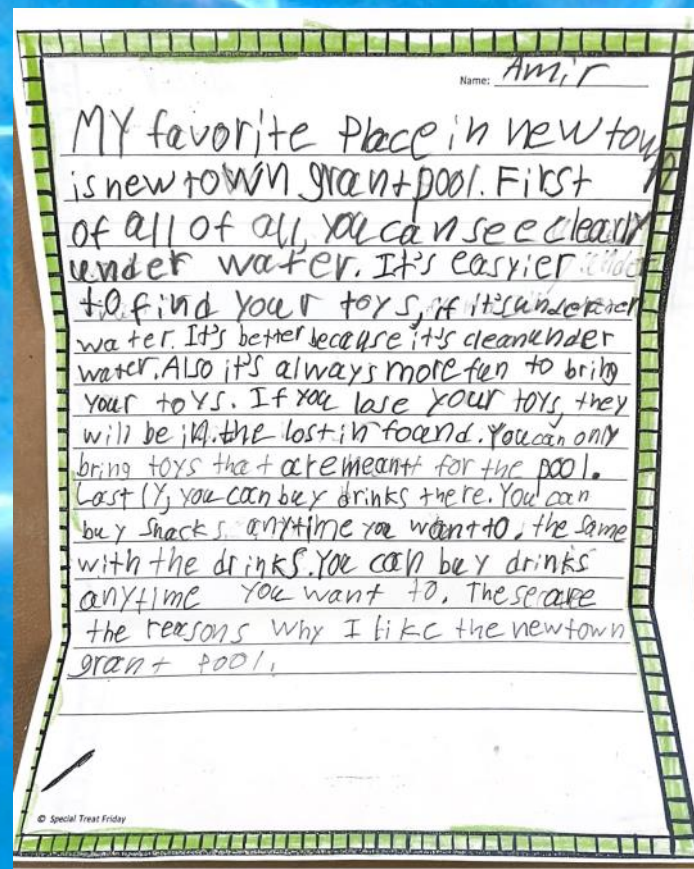 Name: Amir
MY favorite Place in newtown
is newtown grant pool. First
of all of all, you can see clearly
under water. It's easyier
to find your toys, if it's under
water. It's better because it's clean under
water. Also it's always more fun to bring
your toys. If you lose your toys, they
will be in the lost in found. You can only
bring toys that are meant for the pool.
Lastly, you can buy drinks there. You can
buy snacks anytime you want to, the same
with the drinks. You can buy drinks
anytime you want to. These are
the reasons why I like the newtown
grant pool.
© Special Treat Friday